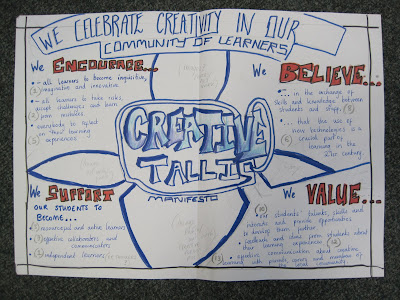 WE CELEBRATE CREATIVITY IN OUR
COMMUNITY OF LEARNERS
We ENCOURAGE...
- all learners to become inquisitive,
① imaginative and innovative.
- all learners to take risks,
accept challenges and learn
② from mistakes
everybody to reflect
on "their" learning
③ experiences
We BELIEVE...
... in the exchange of
skills and knowledge between
students and staff.
... that the use of
new technologies is a
crucial part of
learning in the
21st century.
CREATIVE
TALLIS
MANIFESTO
We SUPPORT
OUR STUDENTS TO
BECOME...
resourceful and active learners
cognitive collaborators and
communicators
independent learners
We VALUE...
⑩ our students' talents, skills and
interests and provide opportunities
to develop them further
feedback and ideas from students about
their learning experience
effective communication about creative
learning with parents, carers and members of
community